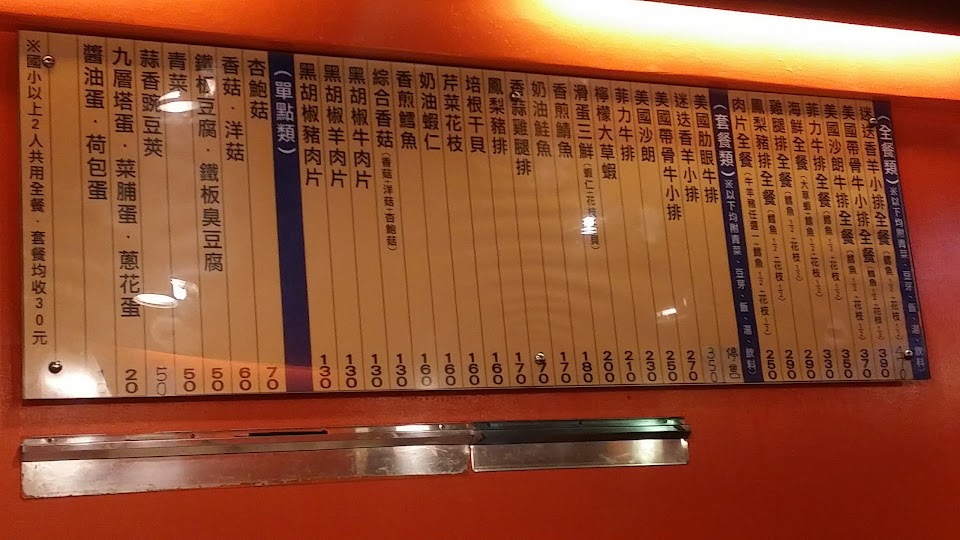 (全餐類)※以下均附青菜、豆芽、飯、湯、飲料)
迷迭香羊小排全餐(鱈魚½花枝½)
美國帶骨牛小排全餐(鱈魚½花枝½) 390
美國沙朗牛排全餐(鱈魚½花枝½) 370
菲力牛排全餐(鱈魚½花枝½) 350
海鮮全餐(大草蝦鱈魚½花枝½) 330
雞腿排全餐(鱈魚½花枝½) 290
鳳梨豬排全餐(鱈魚½花枝½) 290
肉片全餐(牛羊豬任選一鱈魚½花枝½) 250
(套餐類)※以下均附青菜、豆芽、飯、湯、飲料)
美國肋眼牛排 停售
迷迭香羊小排 350
美國帶骨牛小排 270
美國沙朗 250
菲力牛排 230
檸檬大草蝦 210
滑蛋三鮮(蝦仁花枝干貝) 200
香煎鯖魚 180
奶油鮭魚 170
香蒜雞腿排 170
鳳梨豬排 170
培根干貝 160
芹菜花枝 160
奶油蝦仁 160
香煎鱈魚 160
綜合香菇(香菇·洋菇·杏鮑菇) 130
黑胡椒牛肉片 130
黑胡椒羊肉片 130
黑胡椒豬肉片 130
(單點類)
杏鮑菇 70
香菇·洋菇 60
鐵板豆腐·鐵板臭豆腐 50
青菜 50
蒜香豌豆莢 100
九層塔蛋·菜脯蛋·蔥花蛋 20
醬油蛋·荷包蛋
※國小以上2人共用全餐·套餐均收30元